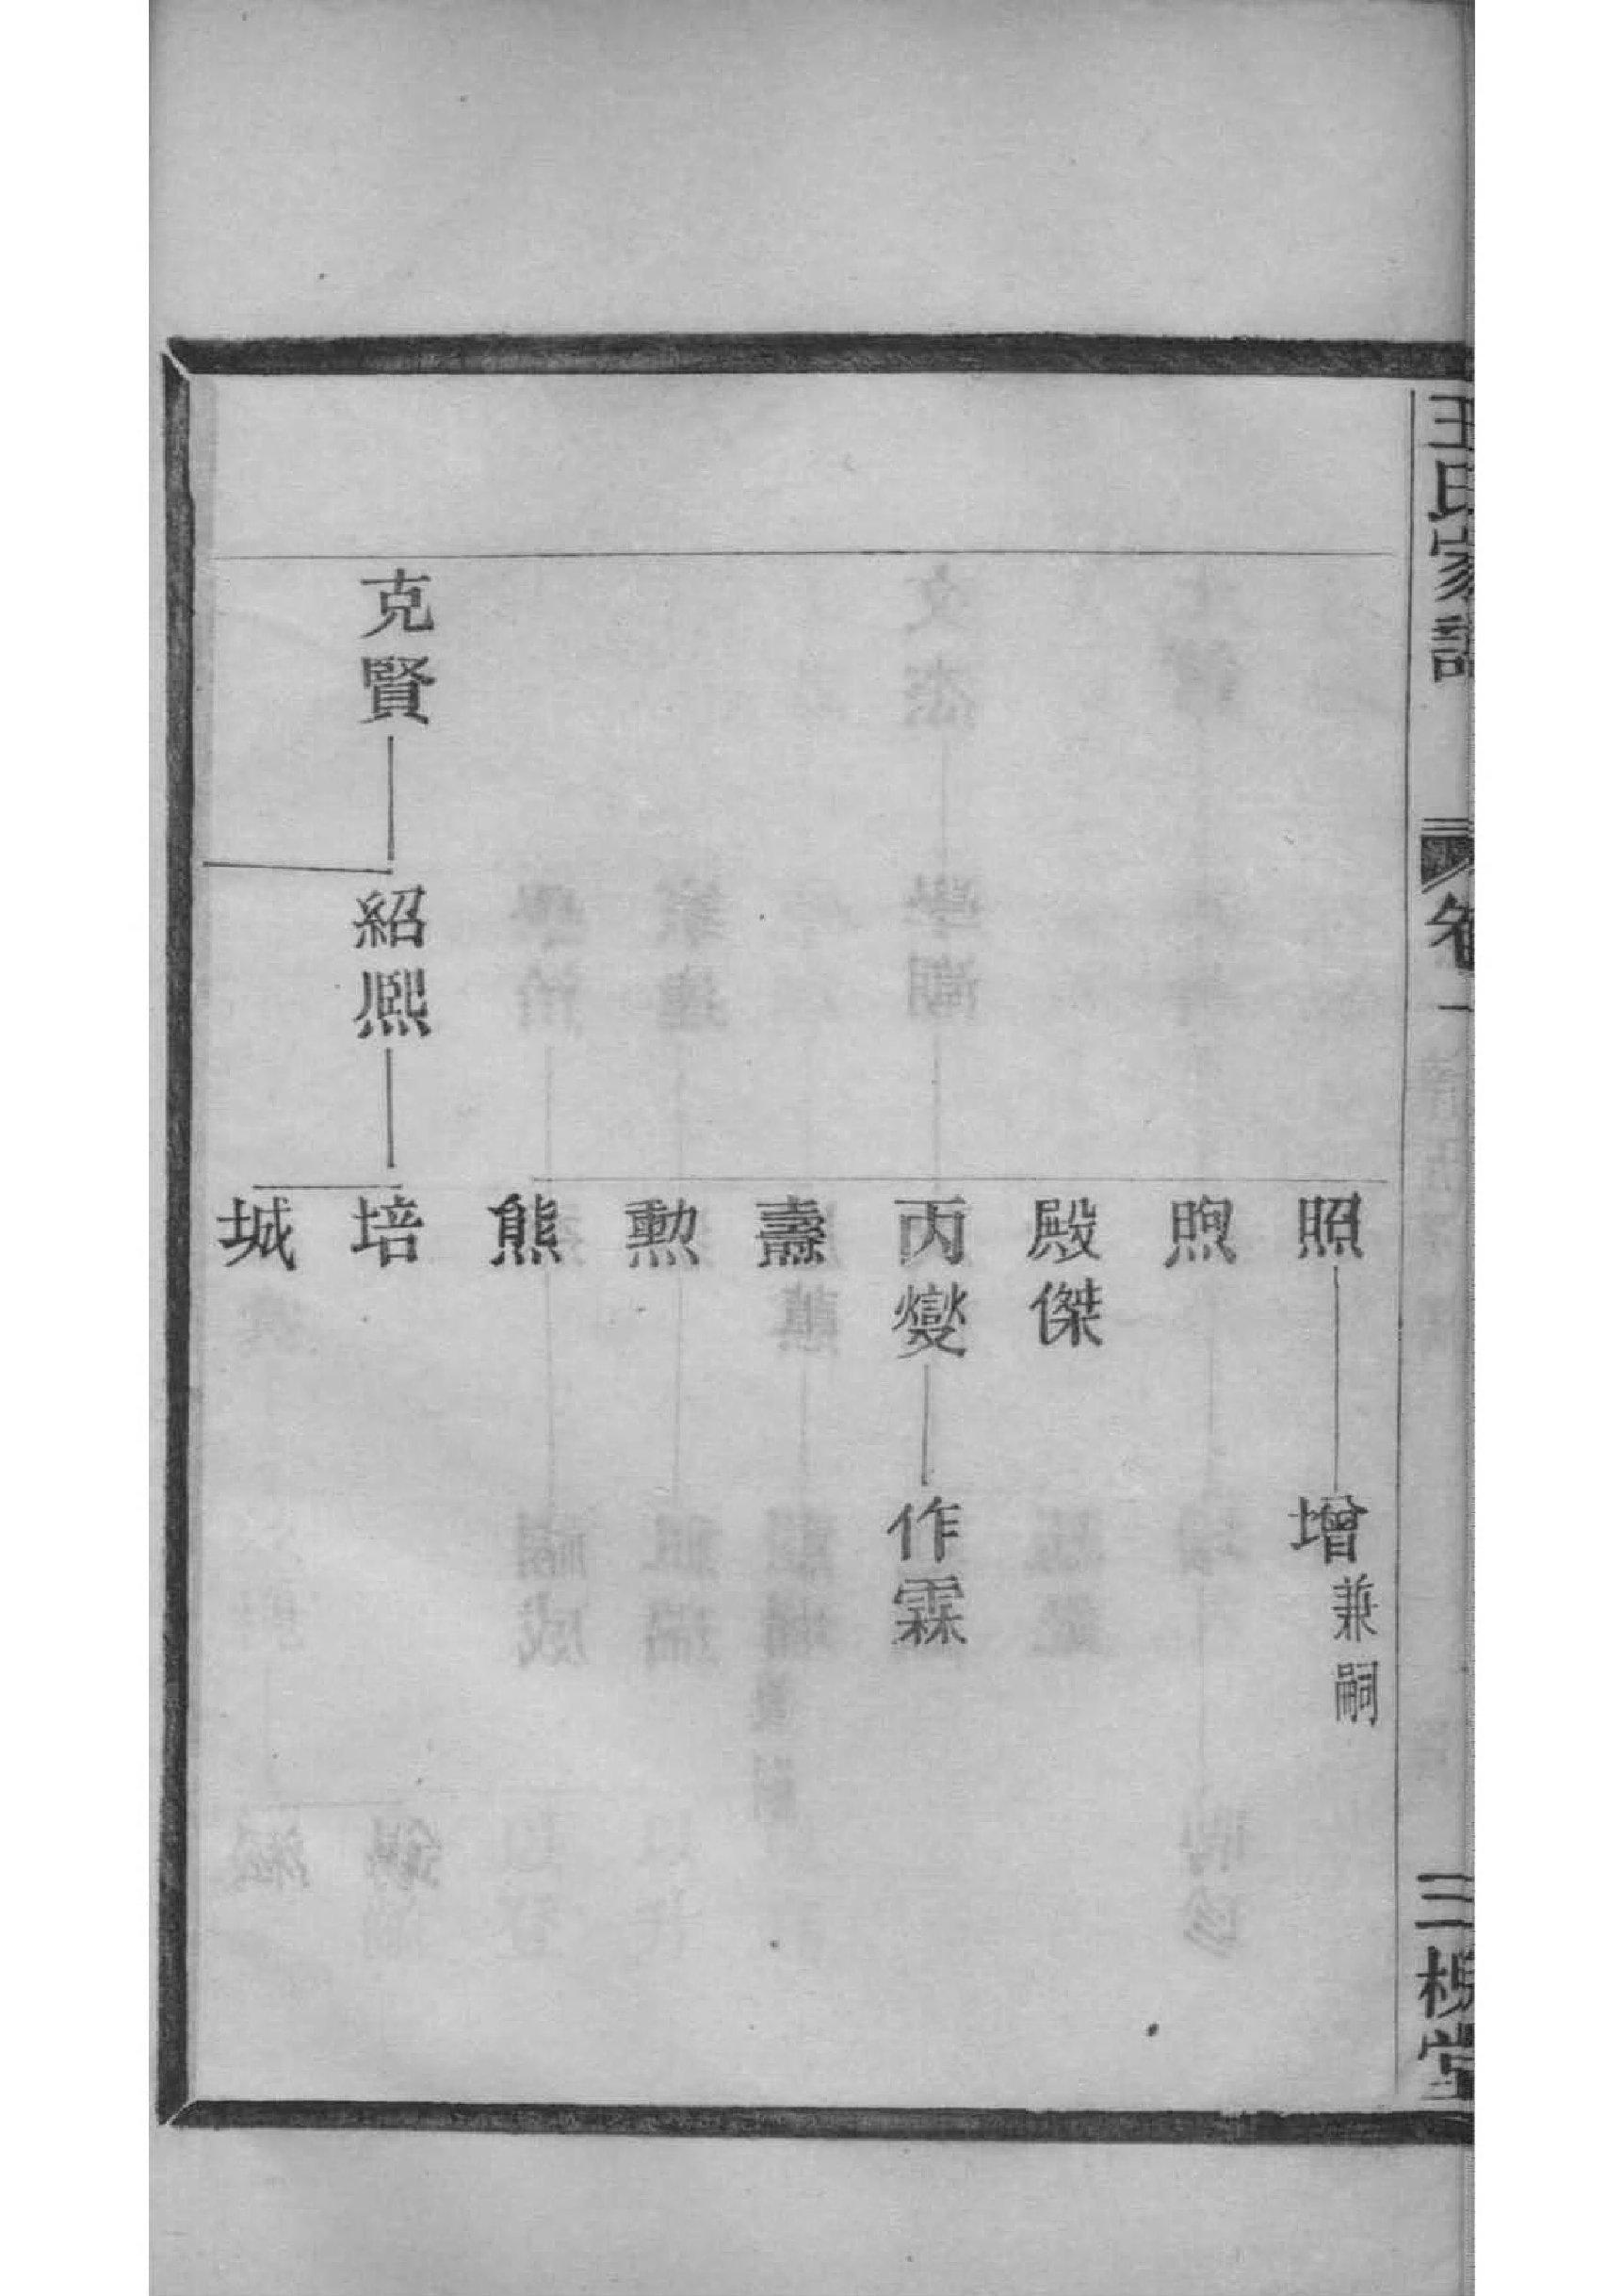 王氏家譜
卷一
三槐堂
照
增兼嗣
煦
殿傑
丙燮
作霖
燾
勲
熊
克賢
紹熙
培
城